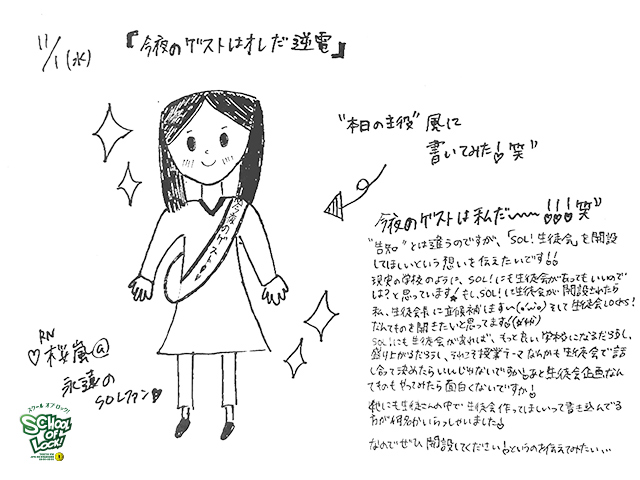 11/1(水)
『今夜のゲストはオレだ逆電』
"本日の主役"風に
書いてみた!笑"
今夜のゲスト!!
今夜のゲストは私だ〜〜!!!笑"
"告知"とは違うのですが、「SOL!生徒会」を開設
してほしいという想いを伝えたいです!!
現実の学校のように、SOL!にも生徒会があってもいいので
は?と思っています!もし、SOL!に生徒会が開設されたら
私、生徒会長に立候補します
そして生徒会LOCKS!
なんてものを開きたいと思ってます!
SOL!にも生徒会があれば、もっと良い学校になるだろうし、
盛り上がるだろうし、それこそ授業テーマなんかも生徒会で話
し合って決めたらいいんじゃないですか?あと生徒会企画なん
てものもやってみたら面白くないですか!
他にも生徒さんの中で生徒会作ってほしいって書き込んでる
方が何名かいらっしゃいました!
なのでぜひ開設してください!というのをお伝えてみたい...
RN
♡桜嵐@
永遠の
SOLファン♡
スクール オブ ロック!
SCHOOL
OF
LOCK!